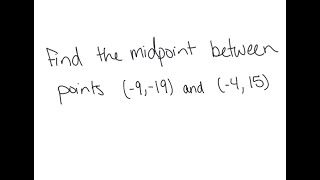 Find the midpoint between
points (-9,-19) and (-4, 15)